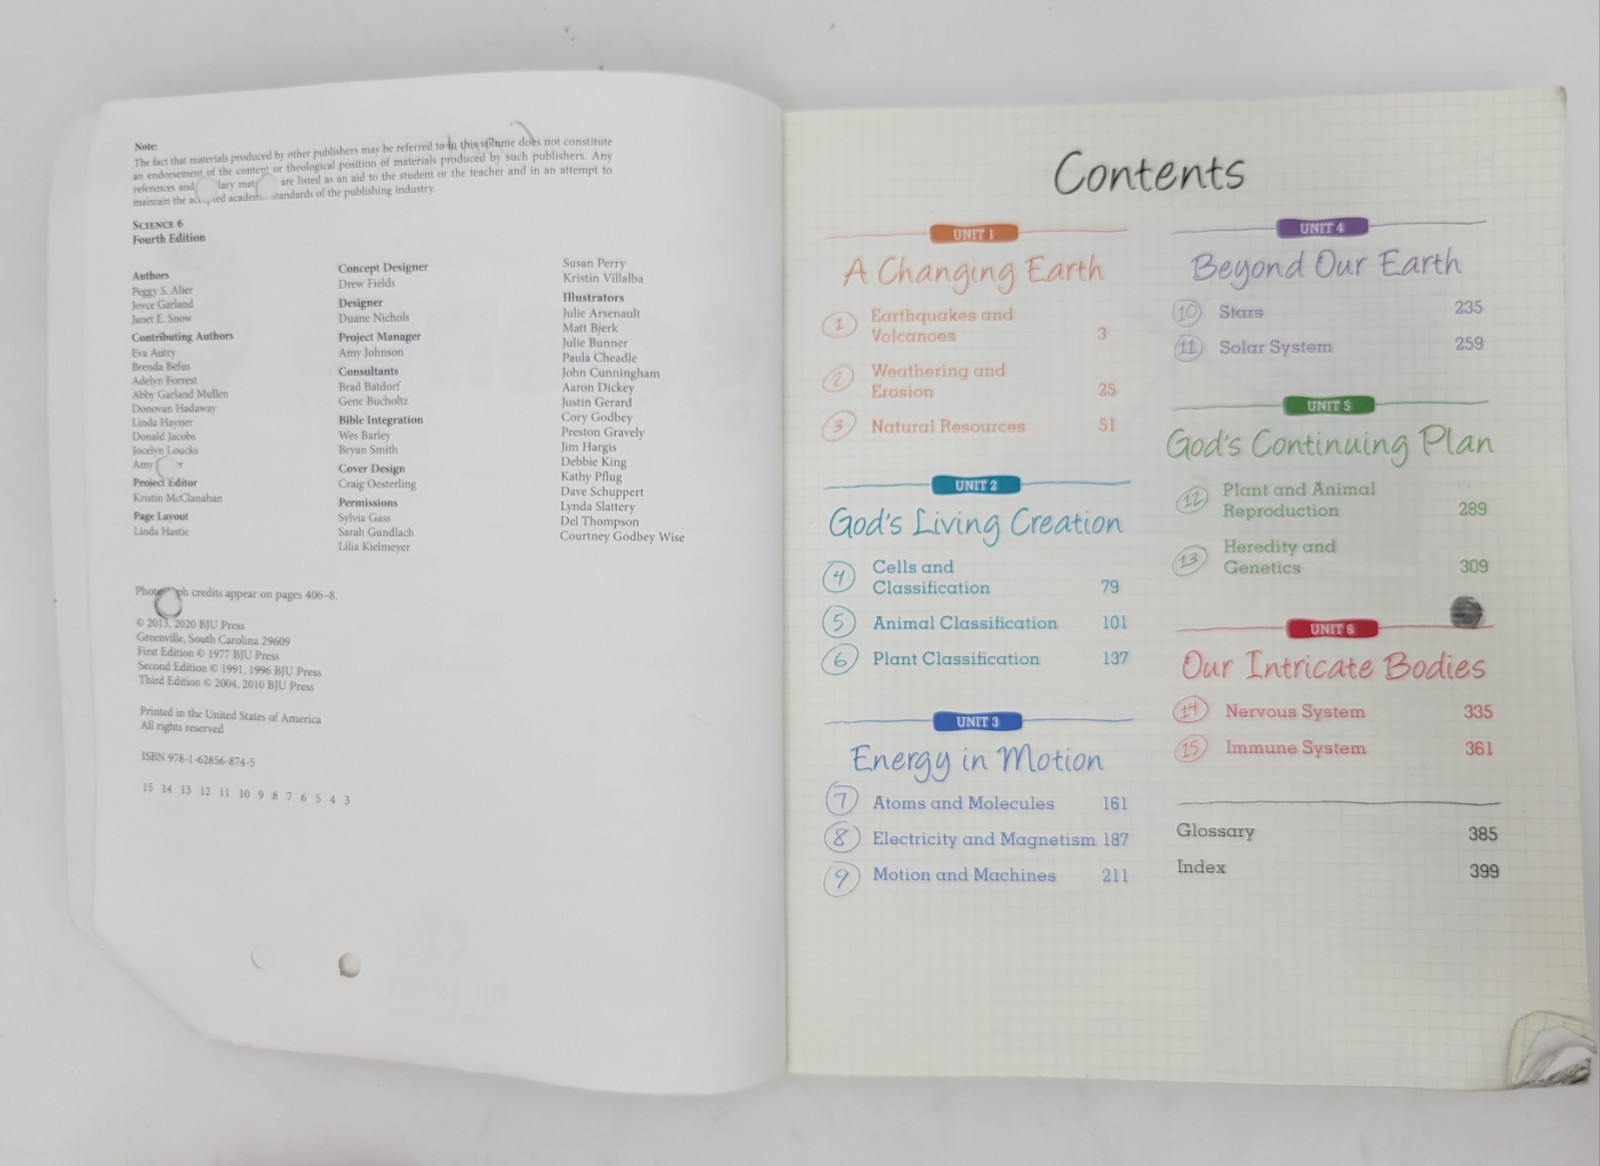 Note:
The fact that materials produced by other publishers may be referred to in this volume does not constitute
an endorsement of the content or theological position of materials produced by such publishers. Any
references and are listed as an aid to the student or the teacher and in an attempt to
maintain the academic standards of the publishing industry.
SCIENCE 6
Fourth Edition
Authors
Peggy S. Alier
Joyce Garland
Janet E. Snow
Contributing Authors
Eva Autry
Brenda Befus
Adelyn Forrest
Abby Garland Mullen
Donovan Hadaway
Linda Hayner
Donald Jacobs
Jocelyn Loucks
Amy
Project Editor
Kristin McClanahan
Page Layout
Linda Hastie
Concept Designer
Drew Fields
Designer
Duane Nichols
Project Manager
Amy Johnson
Consultants
Brad Batdorf
Gene Bucholtz
Bible Integration
Wes Barley
Bryan Smith
Cover Design
Craig Oesterling
Permissions
Sylvia Gass
Sarah Gundlach
Lilia Kielmeyer
Susan Perry
Kristin Villalba
Illustrators
Julie Arsenault
Matt Bjerk
Julie Bunner
Paula Cheadle
John Cunningham
Aaron Dickey
Justin Gerard
Cory Godbey
Preston Gravely
Jim Hargis
Debbie King
Kathy Pflug
Dave Schuppert
Lynda Slattery
Del Thompson
Courtney Godbey Wise
Photograph credits appear on pages 406–8.
© 2013, 2020 BJU Press
Greenville, South Carolina 29609
First Edition © 1977 BJU Press
Second Edition © 1991, 1996 BJU Press
Third Edition © 2004, 2010 BJU Press
Printed in the United States of America
All rights reserved
ISBN 978-1-62856-874-5
15 14 13 12 11 10 9 8 7 6 5 4 3
Contents
UNIT 1
A Changing Earth
1 Earthquakes and
Volcanoes 3
2 Weathering and
Erosion 25
3 Natural Resources 51
UNIT 2
God's Living Creation
4 Cells and
Classification 79
5 Animal Classification 101
6 Plant Classification 137
UNIT 3
Energy in Motion
7 Atoms and Molecules 161
8 Electricity and Magnetism 187
9 Motion and Machines 211
UNIT 4
Beyond Our Earth
10 Stars 235
11 Solar System 259
UNIT 5
God's Continuing Plan
12 Plant and Animal
Reproduction 289
13 Heredity and
Genetics 309
UNIT 6
Our Intricate Bodies
14 Nervous System 335
15 Immune System 361
Glossary 385
Index 399